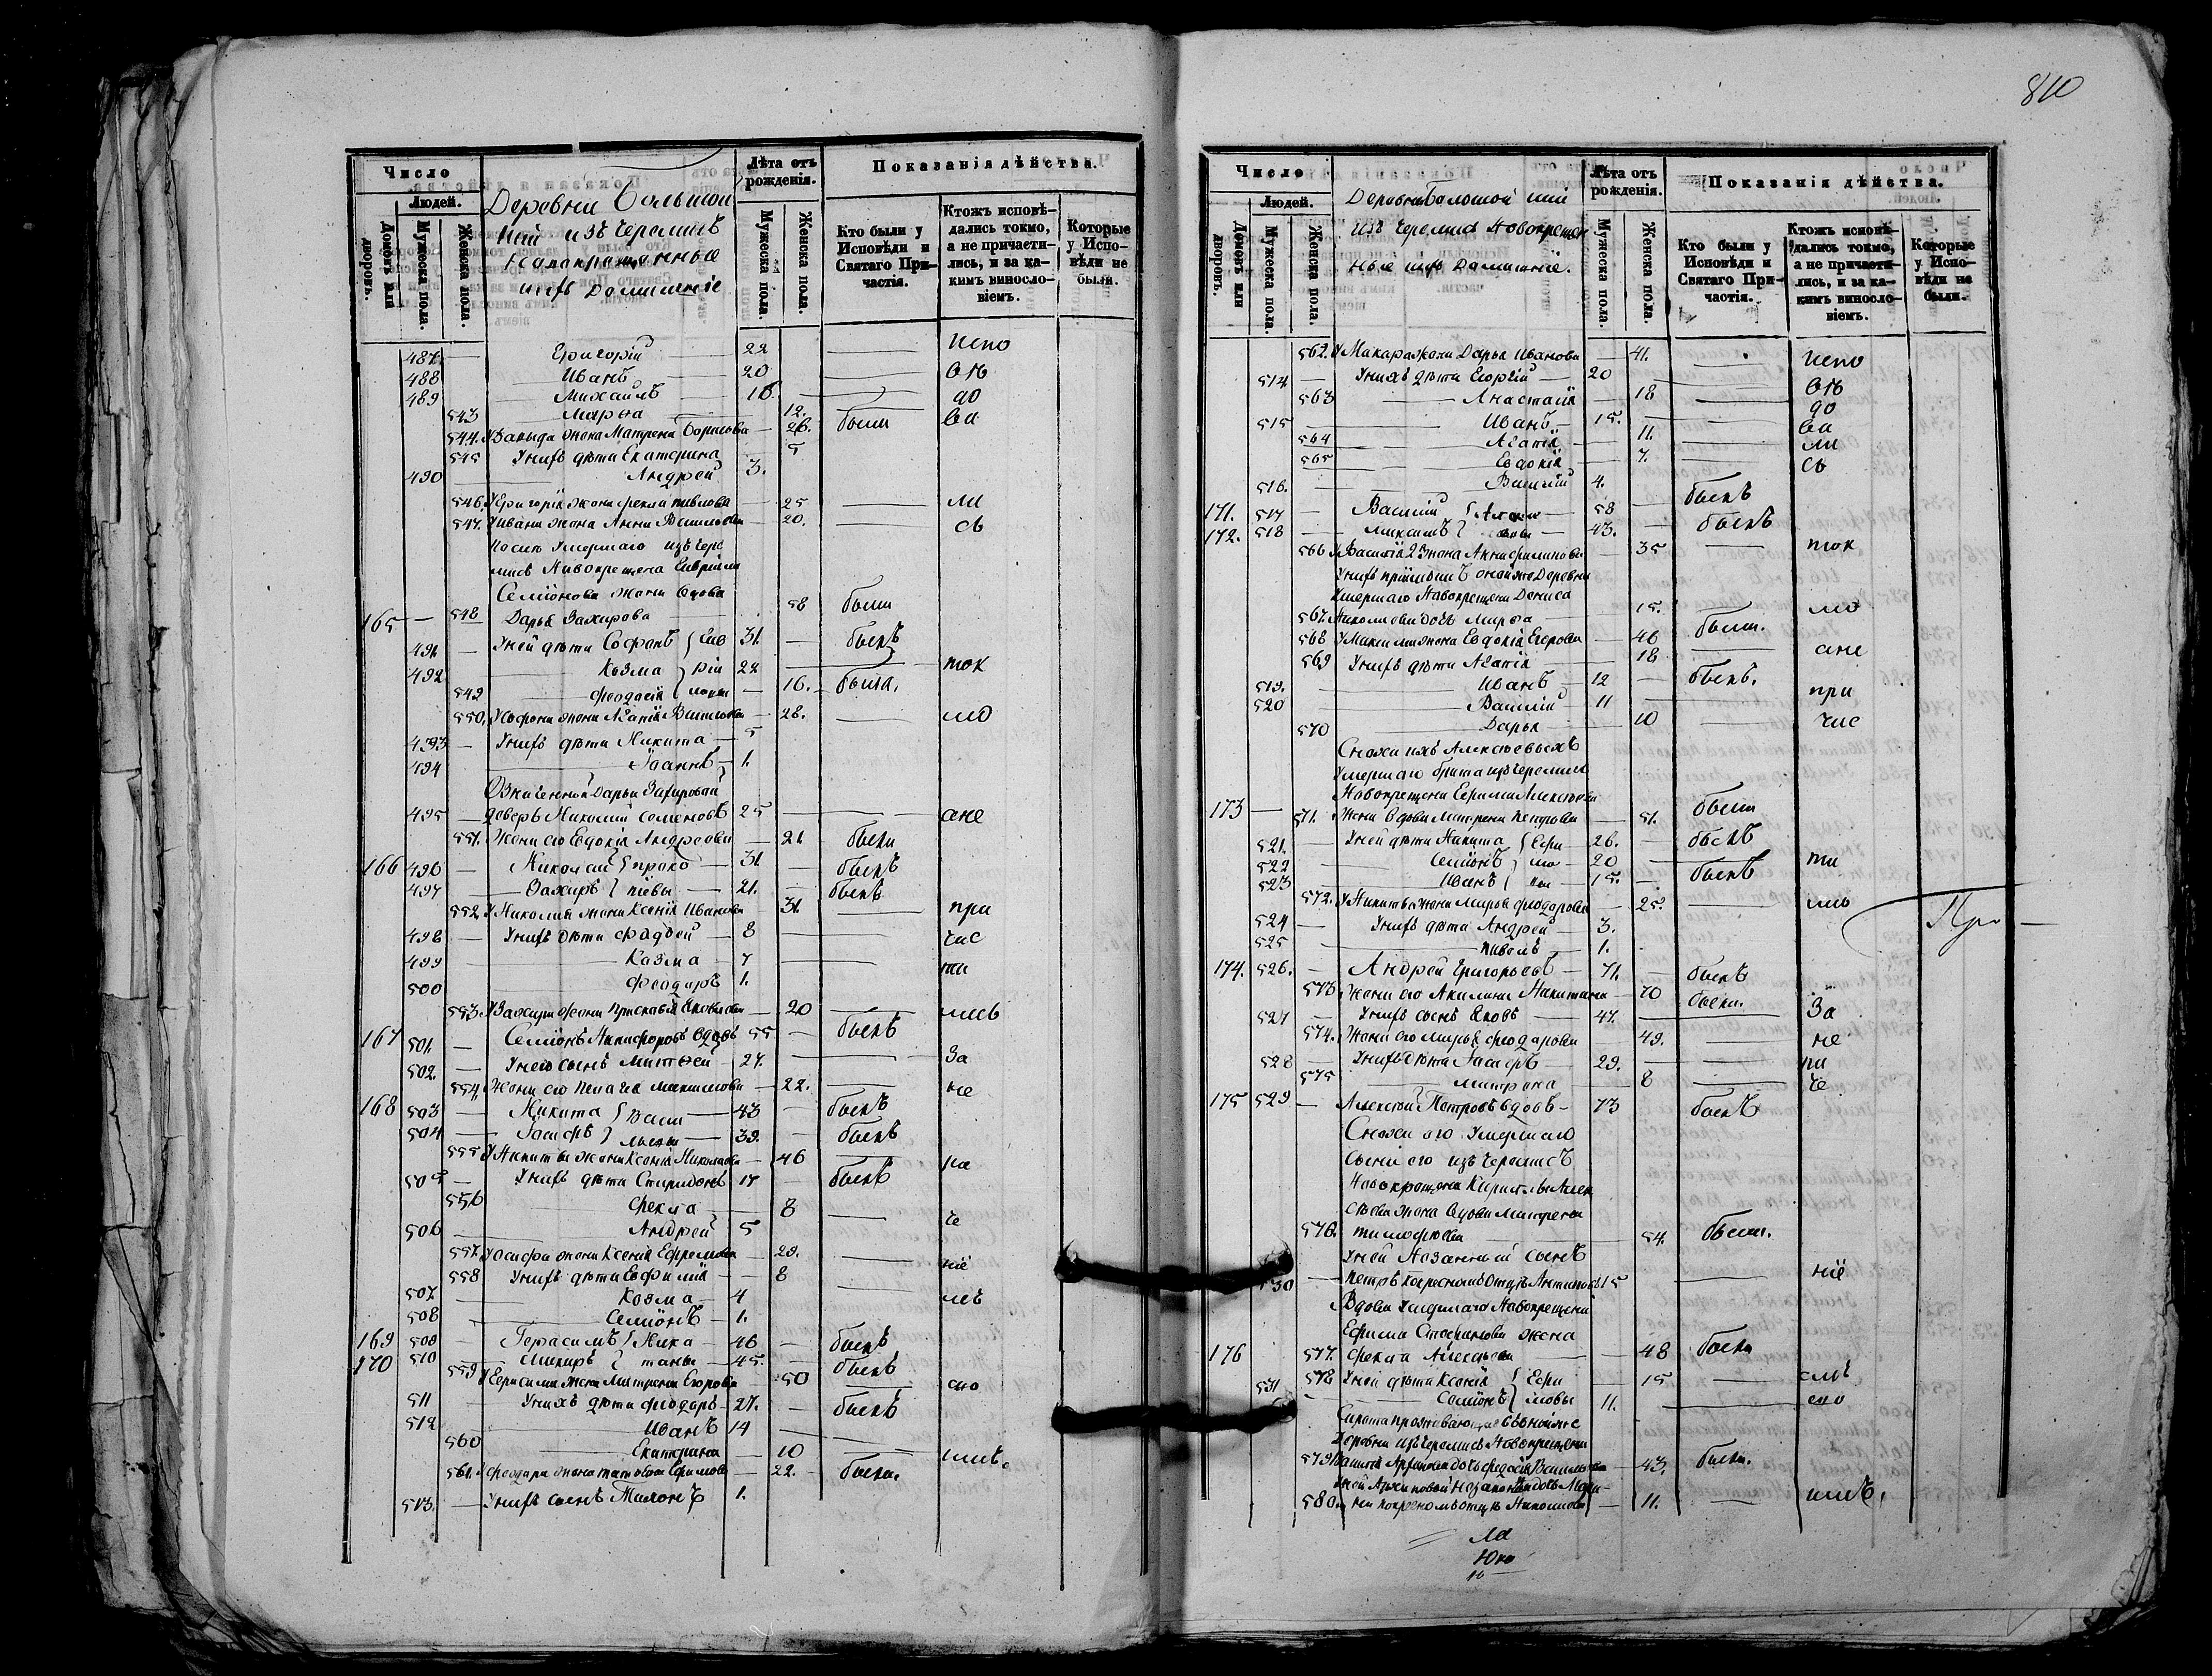 810
Число
Людей.
Домовъ или дворовъ.
Мужеска пола.
Женска пола.
Деревни Большой
изъ черемисъ
новокрещенные
ихъ домашніе
Лѣта отъ рожденія.
Мужеска пола.
Женска пола.
Показанія дѣйства.
Кто были у Исповѣди и Святаго Причастія.
Ктожъ исповѣдались токмо, а не причастились, и за какимъ винословіемъ.
Которые у Исповѣди не были.
487. Григорій 22 испо
488 Иванъ 20 вѣ
489 Михаилъ 18. до
543 Марѳа 12. была ва
544. Жена Матрена Борисова 26.
545 У нихъ дѣти Екатерина 5
490 Андрей 3.
546. У Григорія жена Фекла Павлова 25 ли
547. У Ивана жена Анна Васильева 20. сь
После умершаго изъ чере
мисъ Новокрещена
Семіонова жена вдова
165 548 Дарья Захарова 58 была
491. У ней дѣти Софонъ 31. былъ
492 Козма 22 ток
549 Феодосія 16. была.
550. У Софона жена Агапія Васильева 28. мо
493 У нихъ дѣти Никита 5
494 Іоаннъ 1.
Означенной Дарьи Захаровой
495 деверь Николай Семеновъ 25 ане
551. Жена его Евдокія Андреева 21 была
166 496 Николай 31 былъ
497 Захаръ 21. былъ
552 У Николая жена Ксенія Иванова 31. при
498 У нихъ дѣти Фадѣй 8 час
499 Козма 7 ти
500 Феодоръ 1.
553. У Захара жена Прасковія Яковлева 20 лись
167 501. Семіонъ Никифоровъ вдовъ 55 былъ
502. У него сынъ Матвей 27. За
554. Жена его Пелагея Максимова 22. не
168 503 Никита Васи 43 былъ
504 Іосифъ льевы 39. былъ
555 У Никиты жена Ксенія Николаева 46 ра
505 У нихъ дѣти Спиридонъ 17 былъ
556 Фекла 8
506 Андрей 5 че
557. У Іосифа жена Ксенія Ефремова 29.
558 У нихъ дѣти Евфимія 8 ніе
507. Козма 4
508 Семіонъ 1.
169 509 Герасимъ Ника 46 былъ
170 510 Макаръ 45. былъ
559 У Герасима жена Матрена Егорова 50
511 У нихъ дѣти Феодоръ 27. былъ
512 Иванъ 14
560 Екатерина 10
561. У Феодора жена Татьяна Ефимова 22. была.
513. У нихъ сынъ Тихонъ 1.
Число
Людей.
Домовъ или дворовъ.
Мужеска пола.
Женска пола.
Деревни Большой
изъ черемисъ Новокрещен
ные ихъ домашніе.
Лѣта отъ рожденія.
Мужеска пола.
Женска пола.
Показанія дѣйства.
Кто были у Исповѣди и Святаго Причастія.
Ктожъ исповѣдались токмо, а не причастились, и за какимъ винословіемъ.
Которые у Исповѣди не были.
562. У Макара жена Дарья Иванова 41. испо
514 У нихъ дѣти Георгій 20 вѣ
563 Анастасія 18 до
515 Иванъ 15. ва
564 Агапія 11. ли
565 Евдокія 7. сь
516. Василій 4.
171. 517 Василій 58 былъ
172. 518 Максимъ 43. былъ
566 У Василія 2 жена Анна Филипова 35 ток
У нихъ оной же Деревни
умершаго Новокрещена Дениса
567. Николаева дочь Марѳа 15. мо
568 У Максима жена Евдокія Егорова 46 была.
569 У нихъ дѣти Агапія 18 ане
519. Иванъ 12 былъ.
520 Василій 11 при
570 Дарья 10 час
Сноха ихъ Алексѣевыхъ
умершаго брата изъ черемисъ
Новокрещена Герасима Алексѣева
173 571. Жена вдова Матрена Петрова 51. была
521. У ней дѣти Никита 26. былъ
522 Семіонъ 20 былъ ти
523 Иванъ 15.
572. У Никиты жена Марья Феодорова 25. лись
524 У нихъ дѣти Андрей 3.
525 Павелъ 1.
Про
174. 526. Андрей Григорьевъ 71. былъ
573. Жена его Акилина Никитина 70 была.
527 У нихъ сынъ Яковъ 47. За
574. Жена его Марья Феодорова 49. не
528 У нихъ дѣти Іосифъ 29. ра
575 Матрона 8 че
175 529 Алексѣй Петровъ вдовъ 73 былъ
Сноха его умершаго
сына его изъ черемисъ
Новокрещена Кирилы Алек
сѣева жена вдова Матрена
576. Тимофеева 54. была.
У ней незаконный сынъ
530 Петръ по крестномъ отцѣ Антиповъ 15 ніе
Вдова умершаго Новокрещена
Ефима Степанова жена
176 577. Фекла Алексѣева 48 была
578 У ней дѣти Ксенія 15
531 Семіонъ 11.
Сирота проживающая въ оной же
Деревни изъ черемисъ Новокрещена
579 дочь Федосія Васильева 43. была.
580. по крестномъ отцѣ Николаева 11.